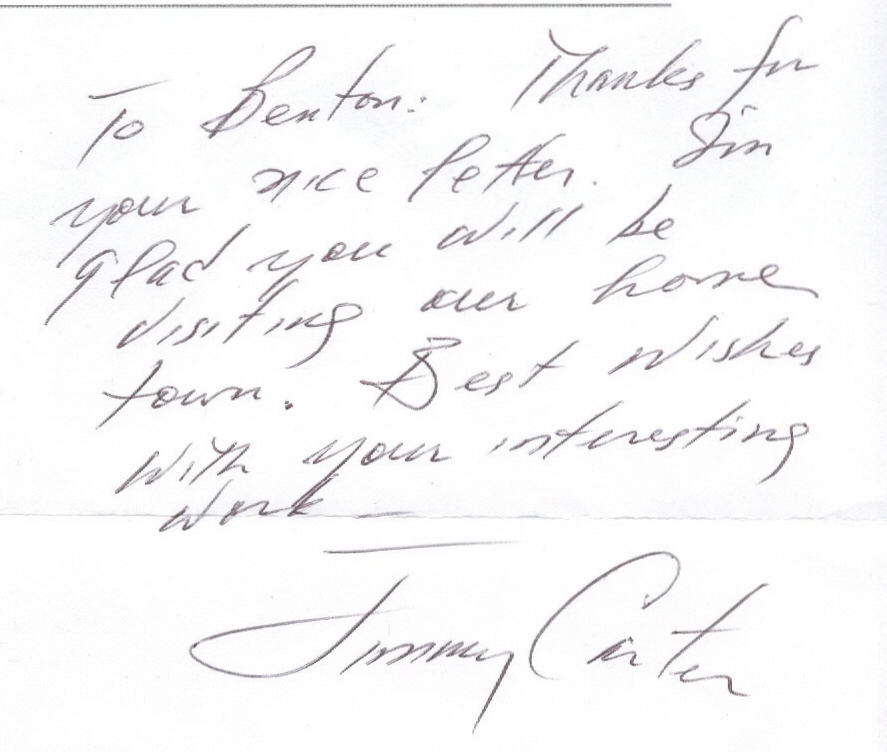 To Benton: Thanks for
your nice letter. I'm
glad you will be
visiting our home
town. Best wishes
with your interesting
work —
Jimmy Carter